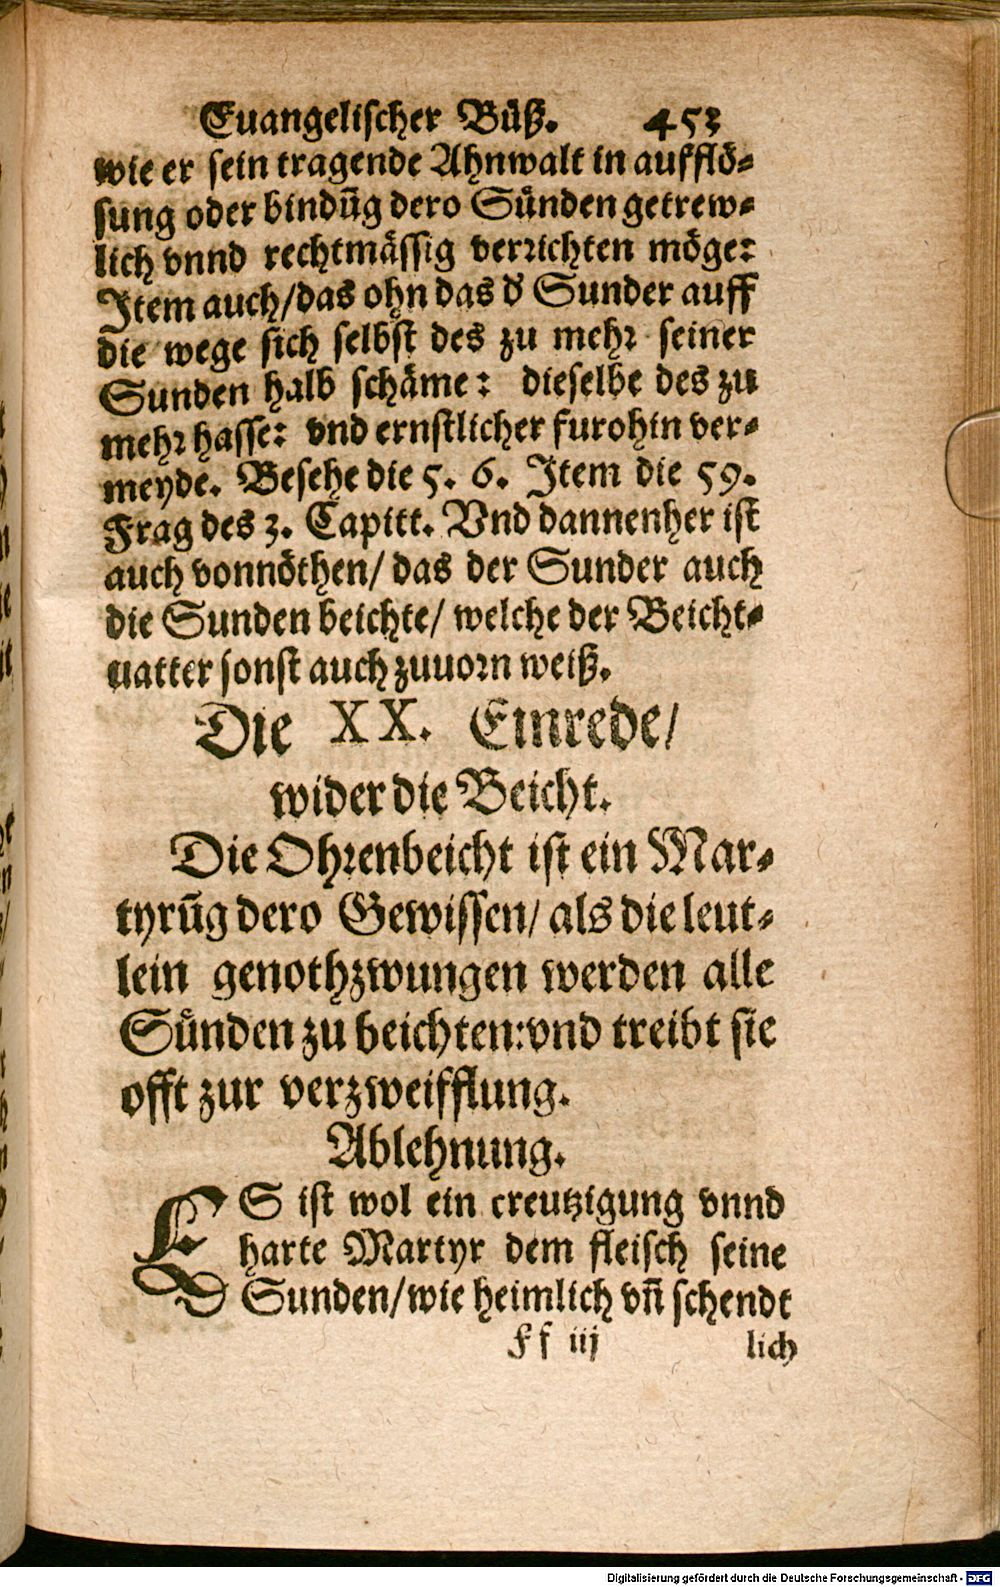 Euangelischer Büß. 453
wie er sein tragende Ahnwalt in aufflö-
sung oder bindūg dero Sünden getrew-
lich vnnd rechtmässig verrichten möge:
Item auch/das ohn das d' Sunder auff
die wege sich selbst des zu mehr seiner
Sunden halb schäme: dieselbe des zu
mehr hasse: vnd ernstlicher furohin ver-
meyde. Besehe die 5. 6. Item die 59.
Frag des 3. Capitt. Vnd dannenher ist
auch vonnöthen/ das der Sunder auch
die Sunden beichte/ welche der Beicht-
uatter sonst auch zuuorn weiß.
Die XX. Einrede/
wider die Beicht.
Die Ohrenbeicht ist ein Mar-
tyrūg dero Gewissen/ als die leut-
lein genothzwungen werden alle
Sünden zu beichten:vnd treibt sie
offt zur verzweifflung.
Ablehnung.
ES ist wol ein creutzigung vnnd
harte Martyr dem fleisch seine
Sunden/wie heimlich vñ schendt
Ff iij lich
Digitalisierung gefördert durch die Deutsche Forschungsgemeinschaft - DFG